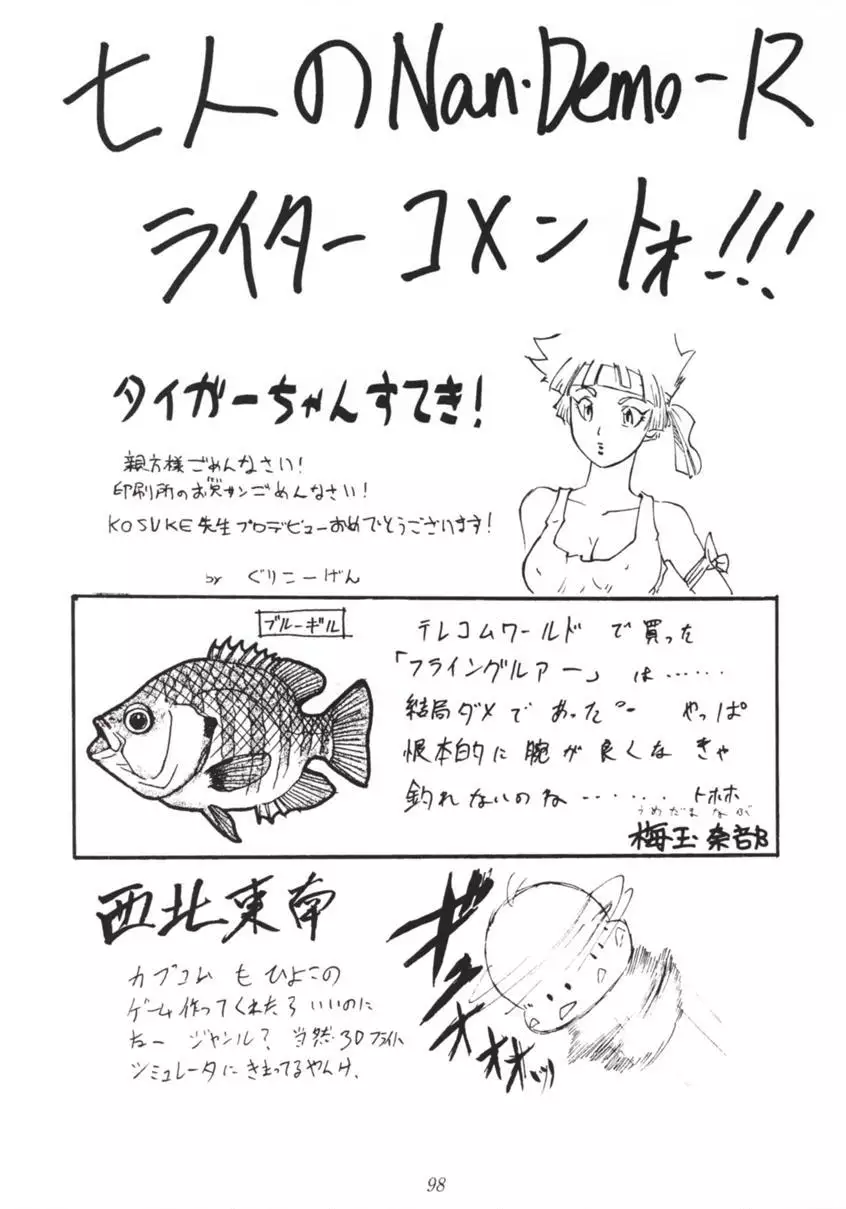 七人のNan・Demo-R
ライターコメントォ!!!
タイガーちゃんすてき!
親方様ごめんなさい!
印刷所のお兄サンごめんなさい!
KOSUKE先生プロデビューおめでとうございます!
by ぐりこーげん
ブルーギル
テレコムワールドで買った
「フライングルアー」は……
結局ダメであった。 やっぱ
根本的に腕が良くなきゃ
釣れないのね……… トホホ
うめだまなぶ
梅玉奈部
西北東南
カプコムもひよこの
ゲーム作ってくれたらいいのに
なー ジャンル? 当然3Dフライト
シミュレータにきまってるやんけ、
ギュオオオオッ
98